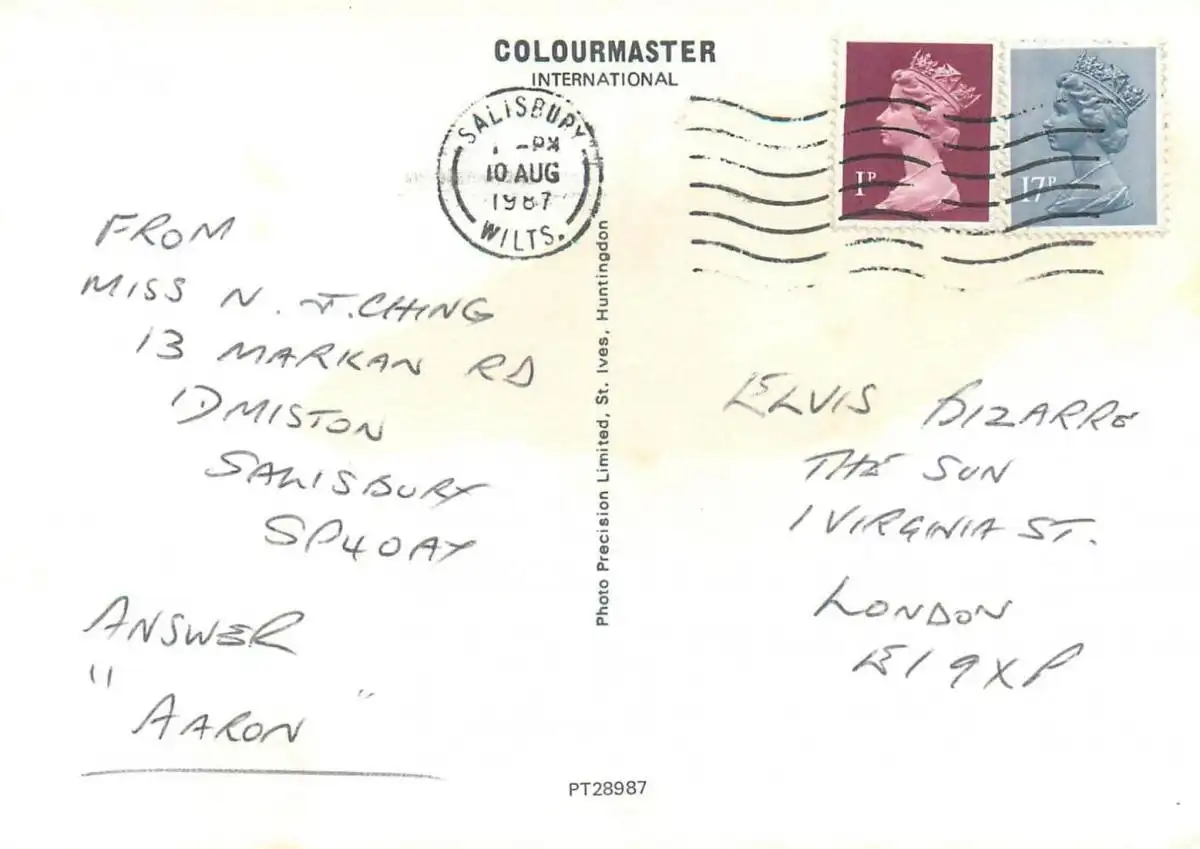 COLOURMASTER
INTERNATIONAL
SALISBURY
PM
10 AUG
1987
WILTS.
1P
17P
FROM
MISS N. J. CHING
13 MARKAN RD
IDMISTON
SALISBURY
SP4 0AY
ANSWER
"AARON"
Photo Precision Limited, St. Ives, Huntingdon
ELVIS BIZARRE
THE SUN
1 VIRGINIA ST.
LONDON
E1 9XP
PT28987